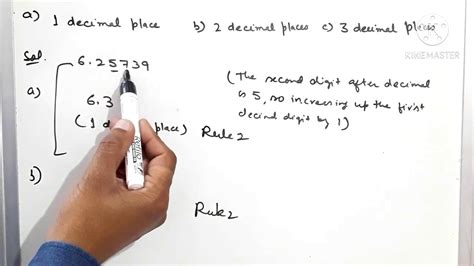 a) 1 decimal place b) 2 decimal places c) 3 decimal places
KINEMASTER
Sol.
6.25739
a)
6.3
(1 d place) Rule 2
(The second digit after decimal
is 5, so increasing up the first
decimal digit by 1)
b)
Rule 2